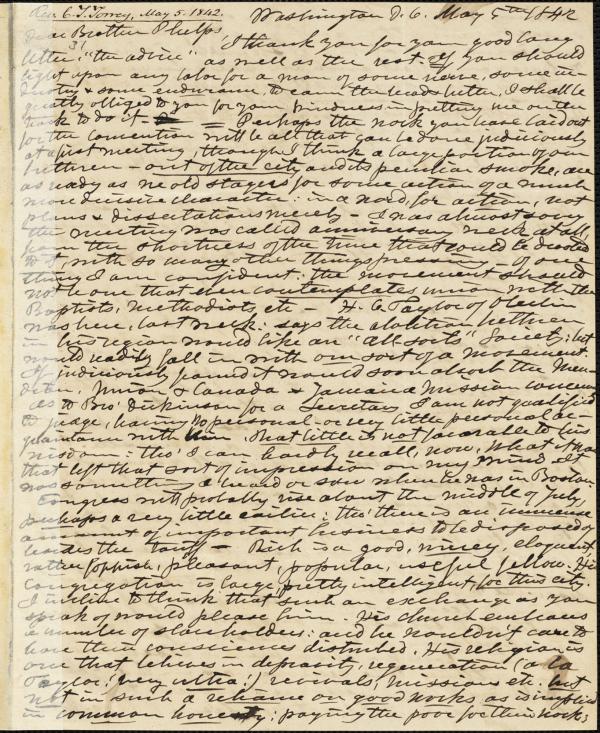 Rev. C. T. Torrey, May 5. 1842.
Washington D. C. May 5th 1842
Dear Brother Phelps
I thank you for your good long
letter, "the advice" as well as the rest. If you should
light upon any labor for a man of some nerve, some in-
dustry & some endurance, to earn the leads better, I shall be
greatly obliged to you for your kindness in putting me on the
track to do it — Perhaps the work you have laid out
for the convention will be all that can be done judiciously
at a first meeting, though I think a large portion of our
brethren — out of the city and its peculiar smoke, are
as ready as we old stagers for some action of a much
more decisive character: in a word, for action, not
plans & dissertations merely — I was almost sorry
the meeting was called anniversary week at all,
from the shortness of the time that could be devoted
to it, with so many other things pressing — of one
thing I am confident: the movement should
not be one that even contemplates union with the
Baptists, Methodists, etc — H. C. Taylor of Oberlin
was here, last week: says the abolition brethren
in his region would like an "all sorts" Society: but
would readily fall in with our sort of a movement.
If judiciously planned it would soon absorb the Men-
dian, Union & Canada & Jamaica Mission concerns
as to Bro' Dickinson for a Secretary I am not qualified
to judge, having no personal or very little personal ac-
quaintance with him. That little is not favorable to his
wisdom: tho' I can hardly recall, now, what it was
that left that sort of impression on my mind. It
was something I heard or saw when he was in Boston.
Congress will probably rise about the middle of July,
perhaps a very little earlier: tho' there is an immense
amount of important business to be disposed of
besides the tariff — Rich is a good, winey, eloquent,
rather foppish, pleasant, popular, useful fellow. His
congregation is large, pretty intelligent, for this city.
I incline to think that such an exchange as you
speak of would please him. His church embraces
a number of slaveholders: and he wouldn't care to
have their consciences disturbed. His religion is
one that believes in depravity, regeneration (a la
Taylor! very ultra!) revivals, missions etc. but
not in such a reliance on good works as is implied
in common honesty; paying the poor for their work;